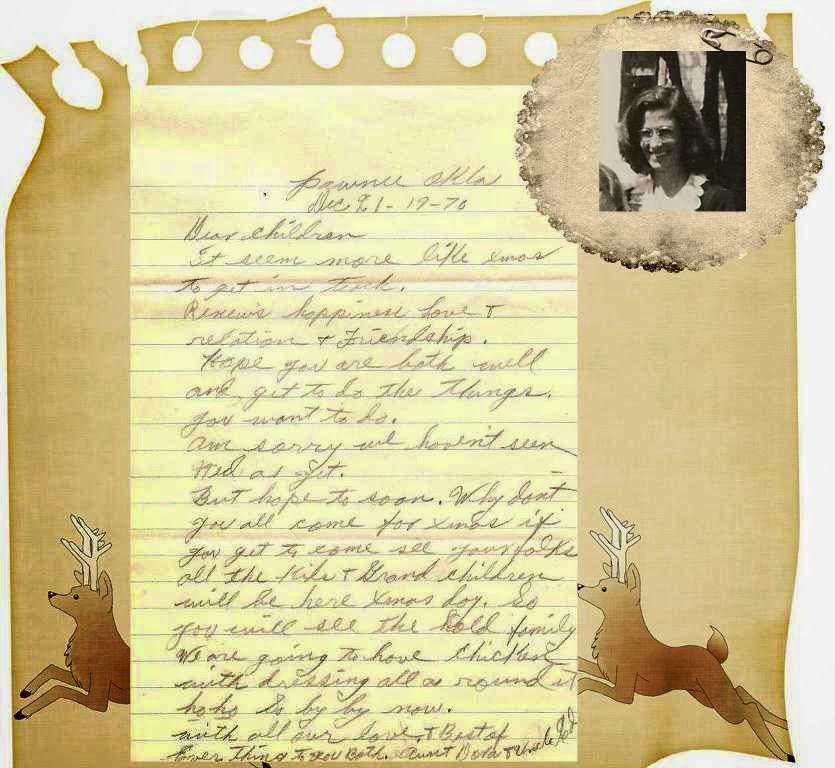 Pawnee Okla
Dec 21-19-70
Dear children
It seem more like xmas
to get in touch.
Renew's happiness Love &
relation & Friendship.
Hope you are both well
and get to do the things.
you want to do.
Am sorry we haven't seen
as yet.
But hope to soon. Why don't
you all come for xmas if
you get to come see your folks
all the Kids & Grand children
will be here Xmas day. So
you will see the hold family
We are going to have Chicken
with dressing all a round it
ho ho So by by now.
with all our love, & Best of
Ever thing to you Both. Aunt Dora & Uncle